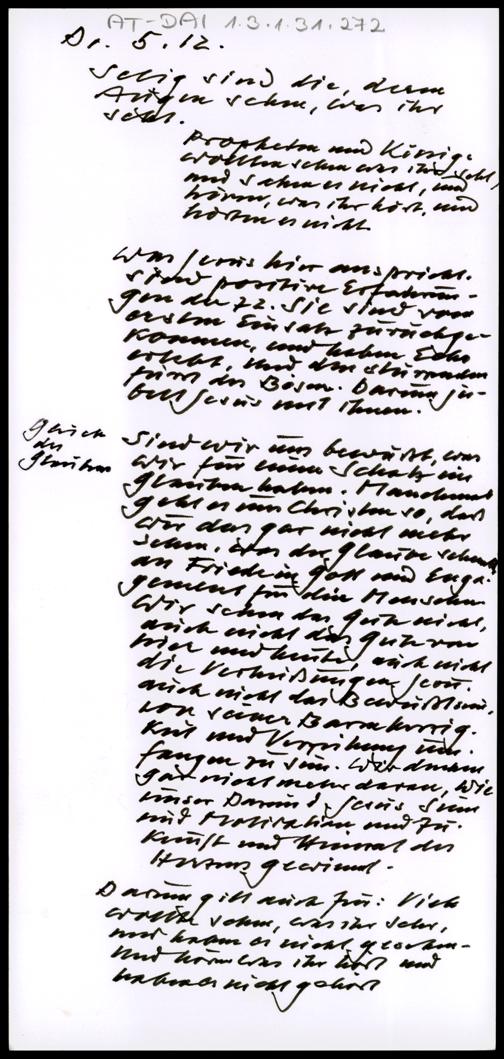 AT-DAI 1.3.1.31.272
Di. 5.12.
Selig sind die, deren
Augen sehen, was ihr
seht.
Propheten und Könige
wollten sehen was ihr seht,
und sahen es nicht, und
hören, was ihr hört, und
hörten es nicht.
Was Jesus hier anspricht.
sind positive Erfahrun-
gen der 72. Sie sind vom
ersten Einsatz zurückge-
kommen, und haben Echo
erlebt, und den stürzenden
Fürst des Bösen. Darum ju-
belt Jesus mit ihnen.
Glück
des
Glaubens
Sind wir uns bewußt, was
wir für einen Schatz im
Glauben haben. Manchmal
geht es uns Christen so, daß
wir das gar nicht mehr
sehen, was der Glaube schenkt
an Friede in Gott und Enga-
gement für die Menschen
Wir sehen das Gute nicht,
auch nicht das Gute von
hier und heute, auch nicht
die Verheißungen Jesu.
auch nicht das Bewußtsein,
von seiner Barmherzig-
keit und Verzeihung um-
fangen zu sein. Wir denken
gar nicht mehr daran, wie
unser Dasein d. Jesus Sinn
und Motivation und Zu-
kunft und Himmel des
Herzens gewinnt.
Darum gilt auch für: Viele
wollten sehen, was ihr seht,
und haben es nicht gesehen-
und hören was ihr hört und
haben es nicht gehört